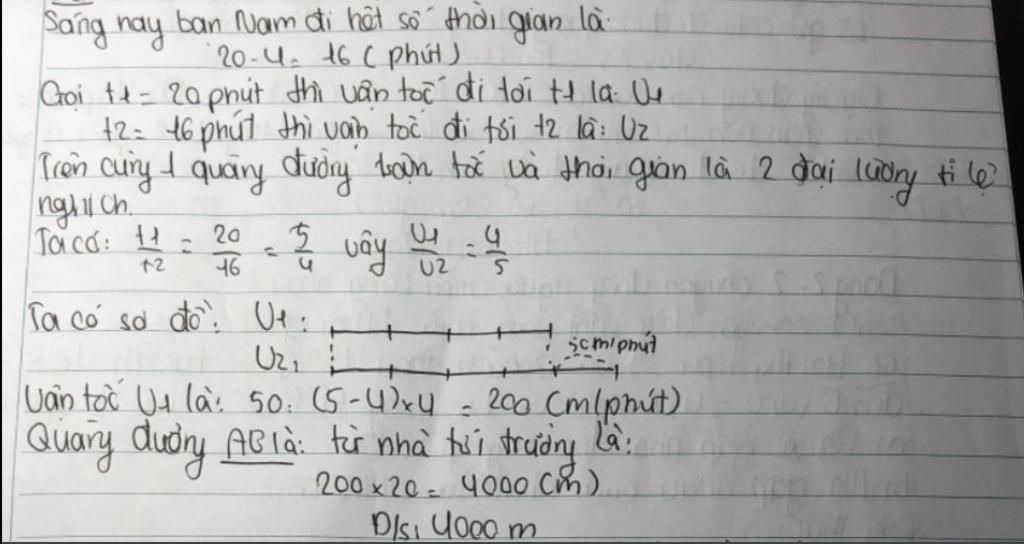 Sáng nay bạn Nam đi hết số thời gian là:
20-4= 16 (phút)
Gọi t1= 20 phút thì vận tốc đi tới t1 là: V1
t2= 16 phút thì vận tốc đi tới t2 là: V2
Trên cùng 1 quãng đường vận tốc và thời gian là 2 đại lượng tỉ lệ
nghịch.
Ta có: t1/t2 = 20/16 = 5/4 vậy V1/V2 = 4/5
Ta có sơ đồ: V1:
5cm/phút
V2:
Vận tốc V1 là: 50: (5-4)x4 = 200 (m/phút)
Quãng đường AB là: từ nhà tới trường là:
200x20= 4000 (m)
Đ/s: 4000 m